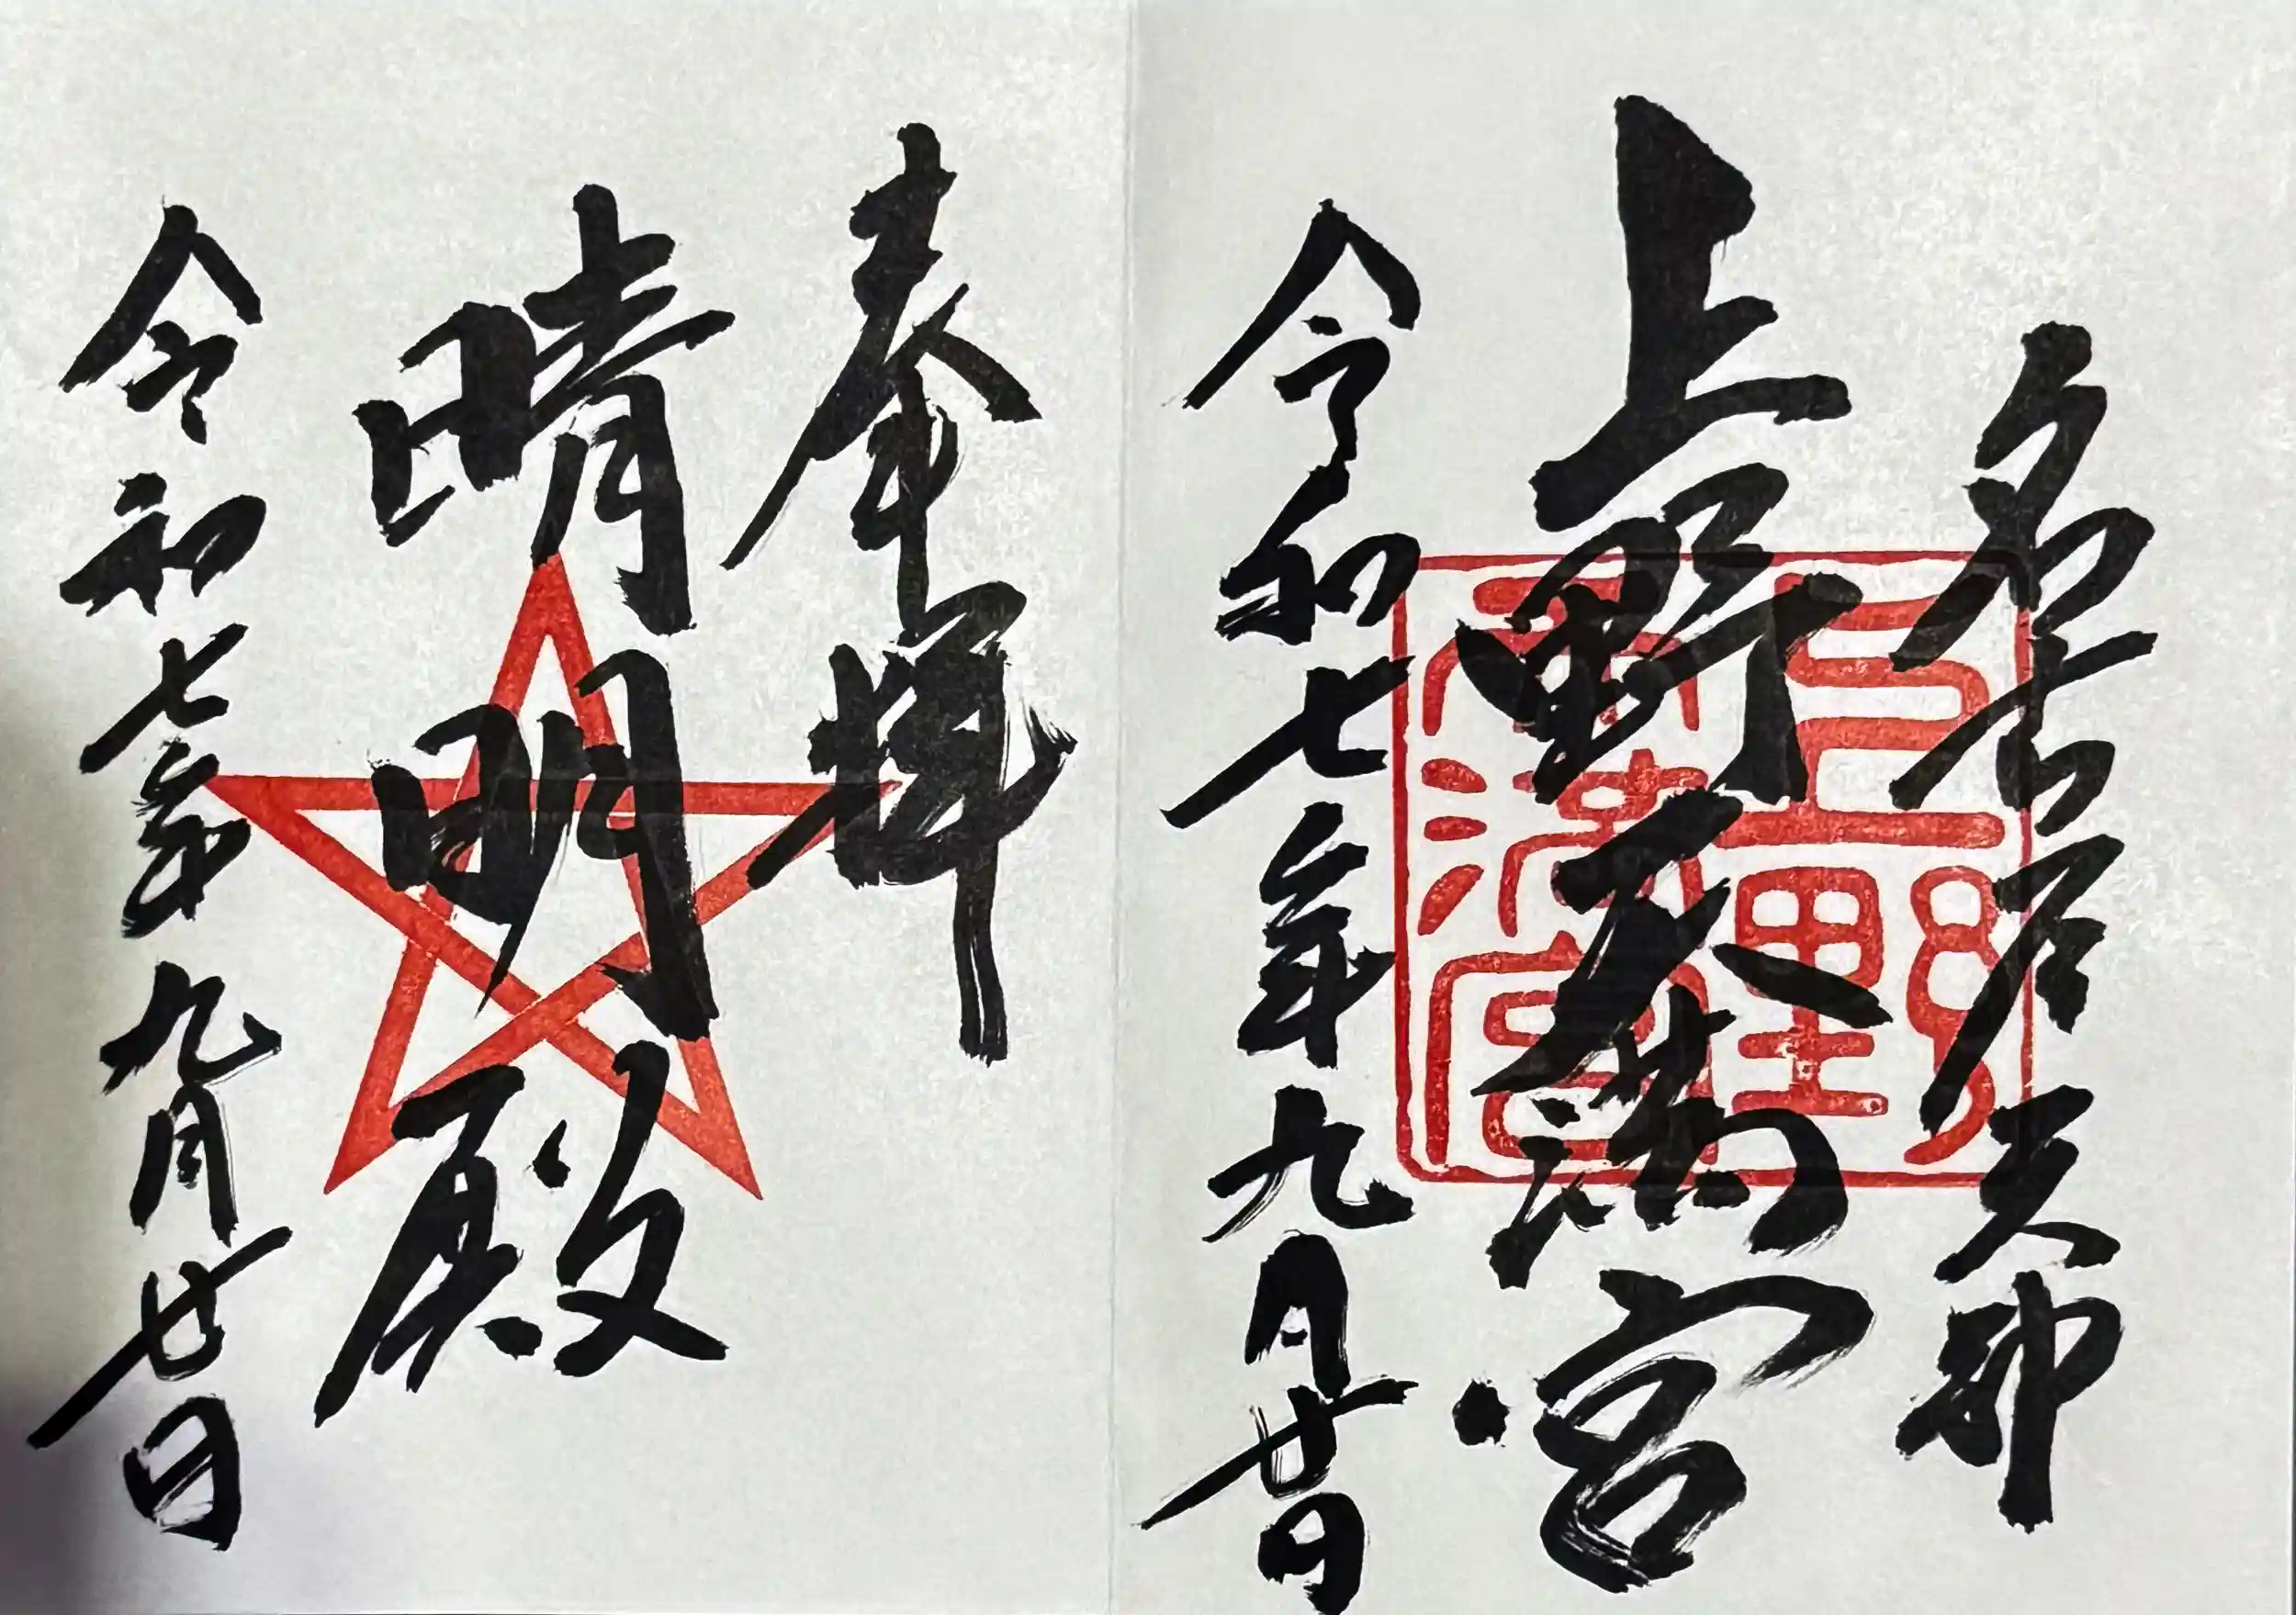 名古屋天神
上野天満宮
令和七年九月廿日
奉拝
晴明殿
令和七年九月廿日
上野天満宮